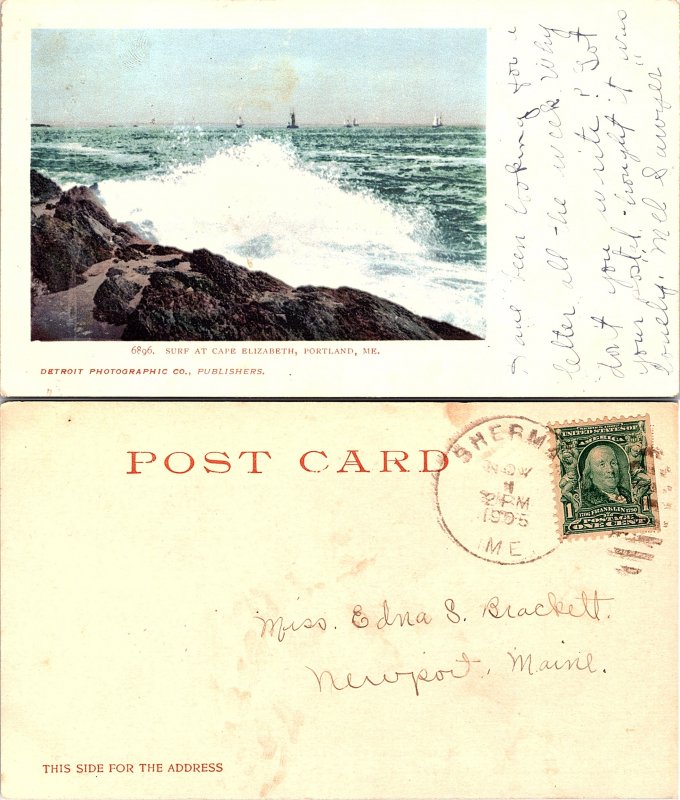 6896. SURF AT CAPE ELIZABETH, PORTLAND, ME.
DETROIT PHOTOGRAPHIC CO., PUBLISHERS.
Have been looking for a
letter all the week. Why
don't you write? Got
your postal - thought it was
lovely. Mell Sawyer
POST CARD
SHERM
NOV
1
2 PM
1905
ME.
SERIES 1902
UNITED STATES OF
AMERICA
1 1
1706 FRANKLIN 1790
POSTAGE
ONE CENT
Miss. Edna S. Brackett.
Newport, Maine.
THIS SIDE FOR THE ADDRESS